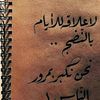 لا علاقة للأيام
بالنضج ..
نحن نكبر بمرور
الناس !